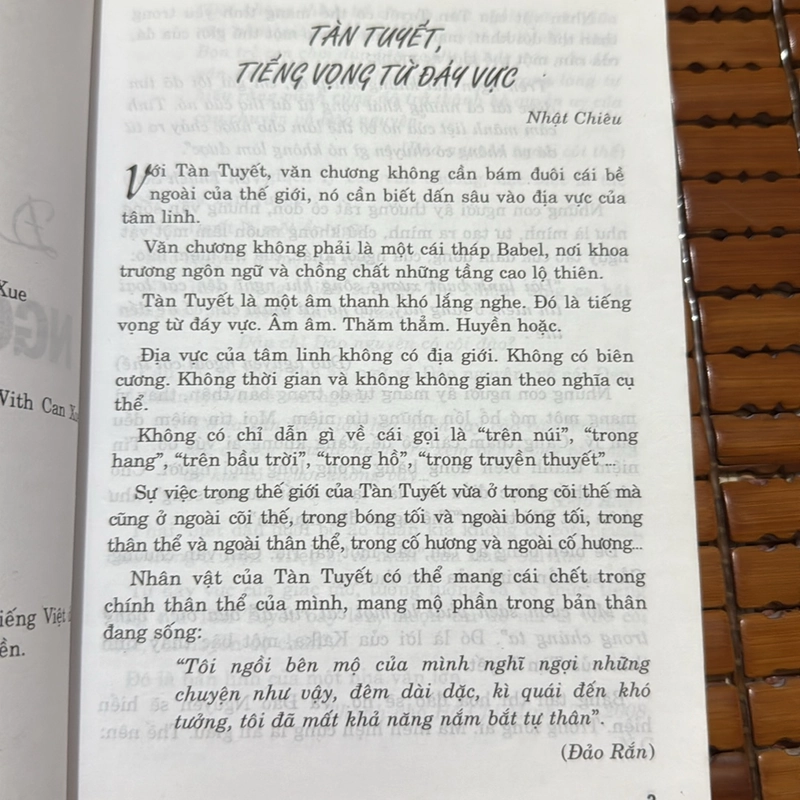 Xue
With Can X
iếng Việt
ền.
TÀN TUYẾT,
TIẾNG VỌNG TỪ ĐÁY VỰC
Nhật Chiêu
Với Tàn Tuyết, văn chương không cần bám đuôi cái bề
ngoài của thế giới, nó cần biết dấn sâu vào địa vực của
tâm linh.
Văn chương không phải là một cái tháp Babel, nơi khoa
trương ngôn ngữ và chồng chất những tầng cao lộ thiên.
Tàn Tuyết là một âm thanh khó lắng nghe. Đó là tiếng
vọng từ đáy vực. Âm âm. Thăm thẳm. Huyền hoặc.
Địa vực của tâm linh không có địa giới. Không có biên
cương. Không thời gian và không không gian theo nghĩa cụ
thể.
Không có chỉ dẫn gì về cái gọi là “trên núi”, “trong
hang”, “trên bầu trời”, “trong hồ”, “trong truyền thuyết”...
Sự việc trong thế giới của Tàn Tuyết vừa ở trong cõi thế mà
cũng ở ngoài cõi thế, trong bóng tối và ngoài bóng tối, trong
thân thể và ngoài thân thể, trong cố hương và ngoài cố hương...
Nhân vật của Tàn Tuyết có thể mang cái chết trong
chính thân thể của mình, mang mộ phần trong bản thân
đang sống:
“Tôi ngồi bên mộ của mình nghĩ ngợi những
chuyện như vậy, đêm dài dặc, kì quái đến khó
tưởng, tôi đã mất khả năng nắm bắt tự thân”.
(Đảo Rắn)